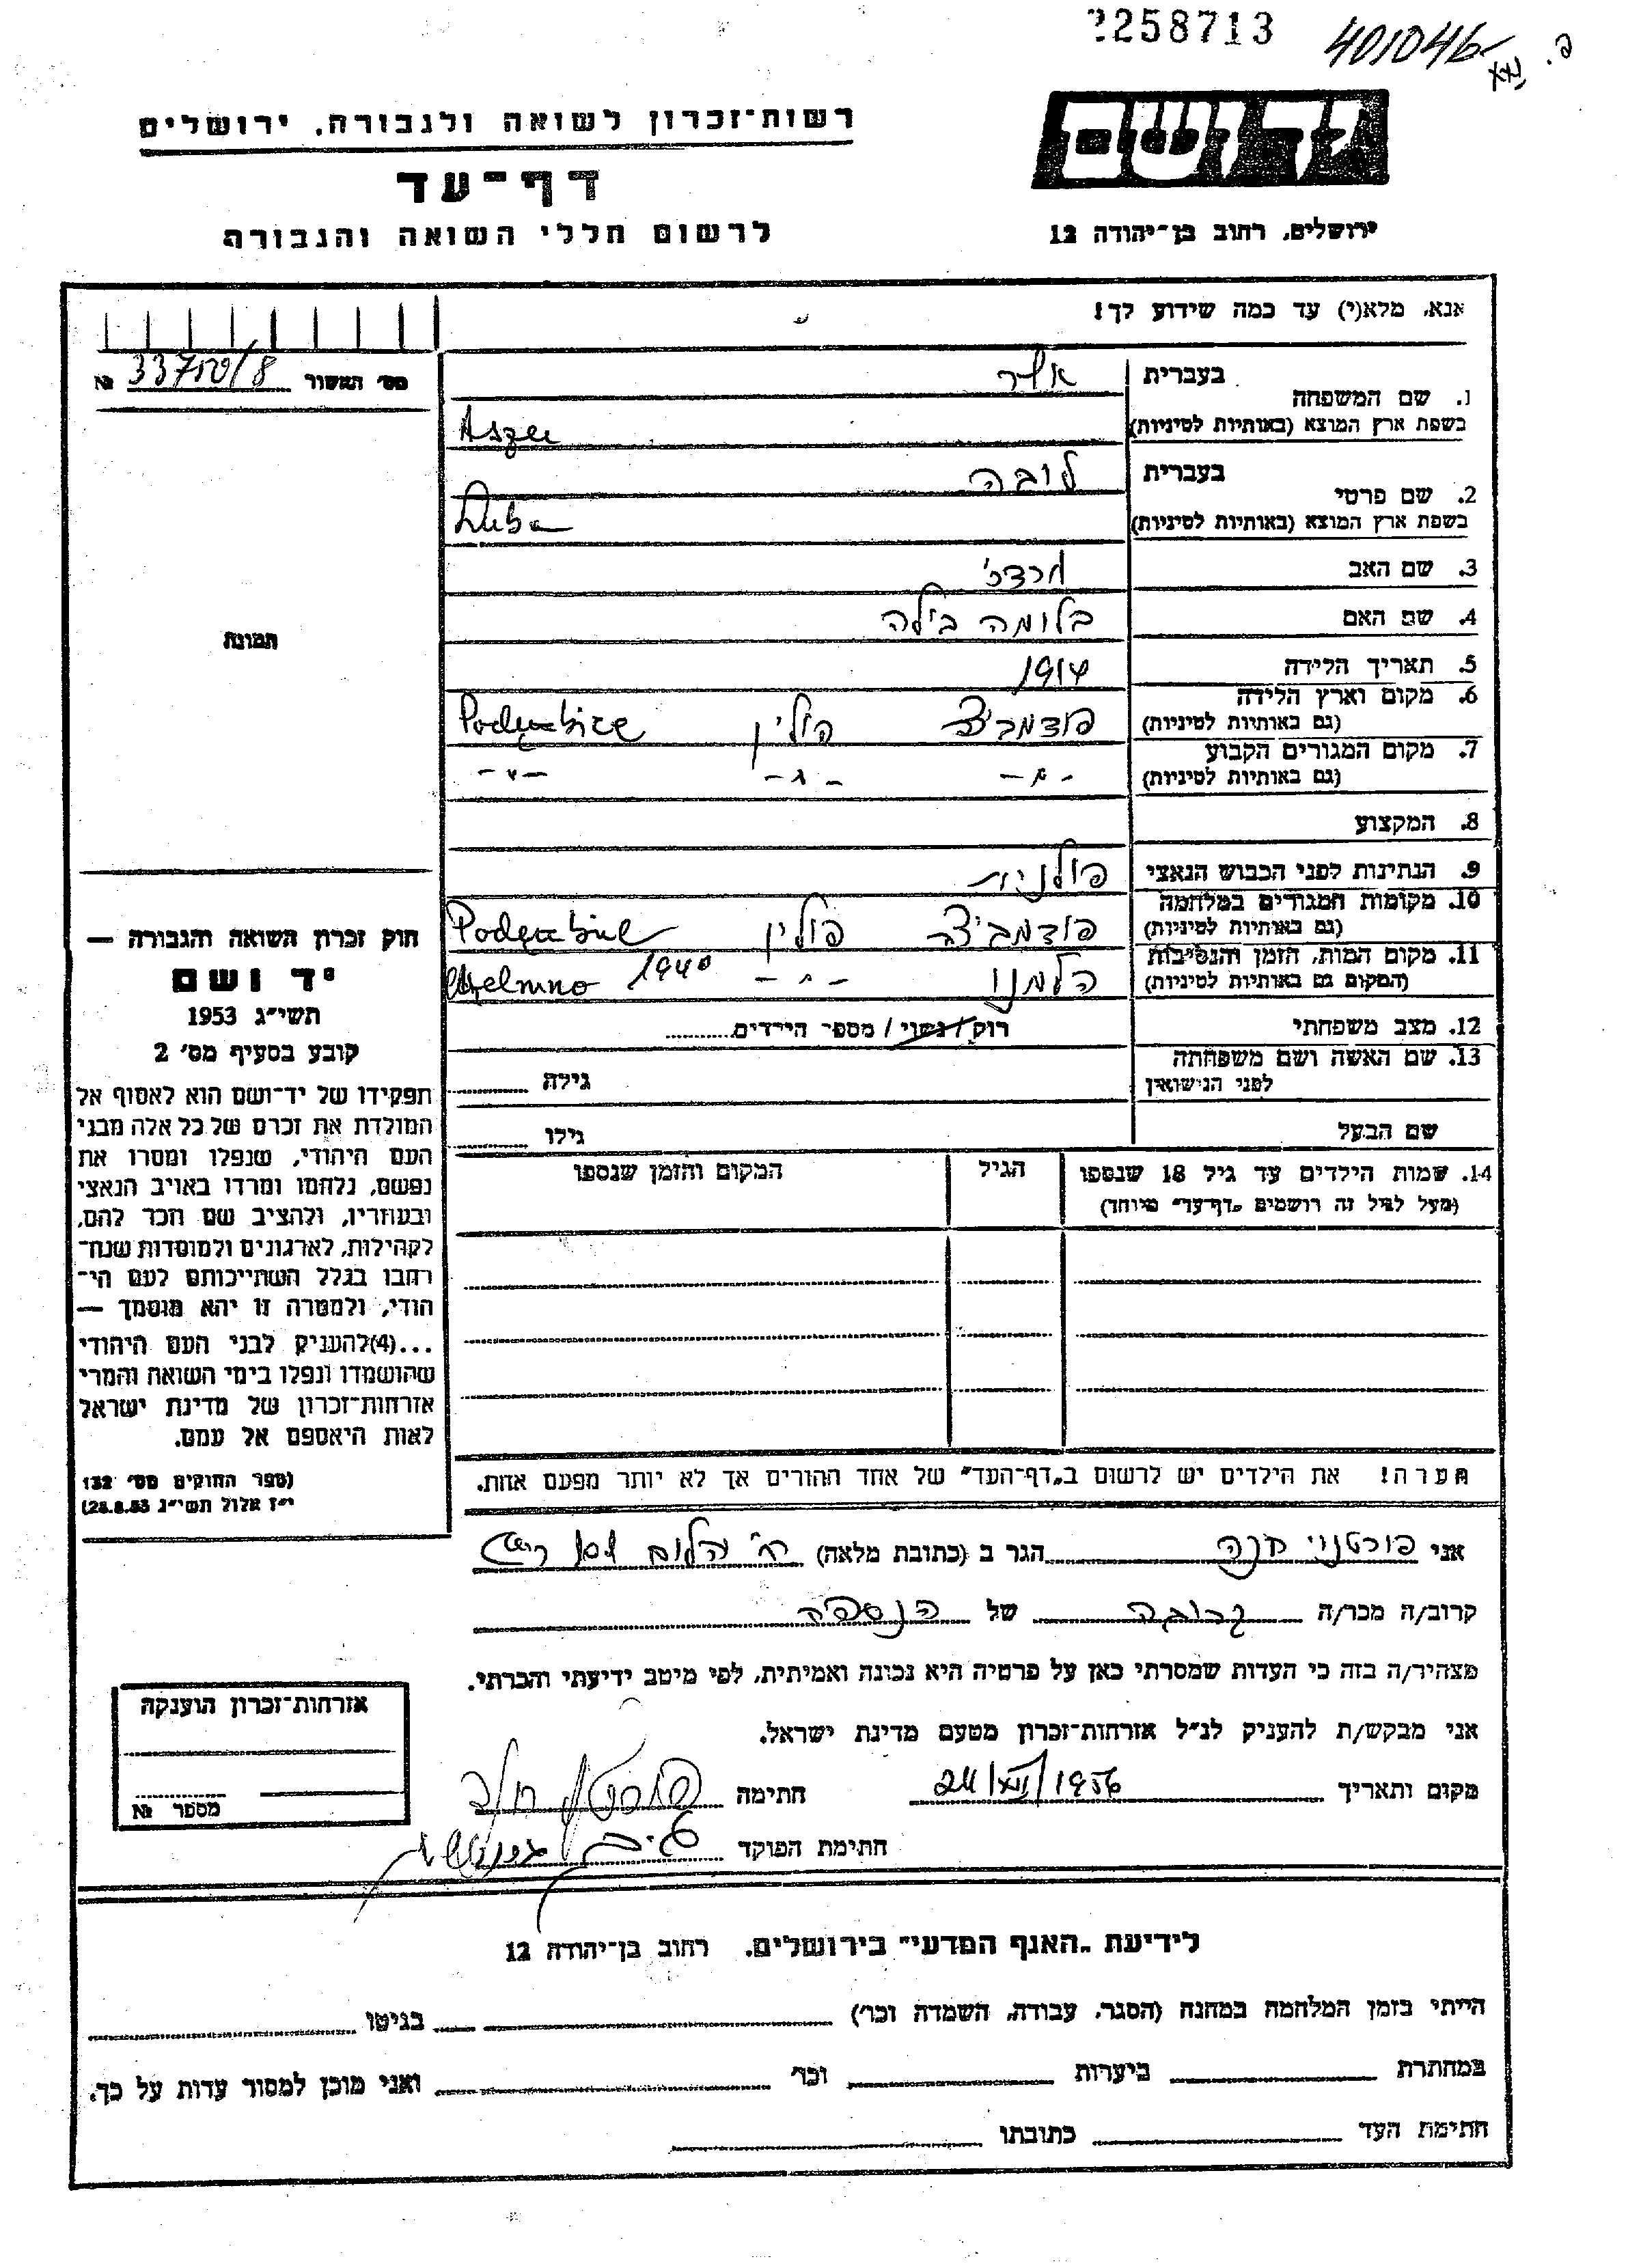 258713
401046
רשות־זכרון לשואה ולגבורה, ירושלים
דף־עד
לרשום חללי השואה והגבורה
יד ושם
ירושלים, רחוב בן־יהודה 12
אנא, מלא(י) עד כמה שידוע לך!
מס׳ האשור № 33750/8
1. שם המשפחה בעברית אשר
בשפת ארץ המוצא (באותיות לטיניות) Aszer
2. שם פרטי בעברית לובה
בשפת ארץ המוצא (באותיות לטיניות) Luba
3. שם האב מרדכי
4. שם האם בלומה בילה
5. תאריך הלידה 1914
6. מקום וארץ הלידה (גם באותיות לטיניות) פודמביצה פולין Podębice
7. מקום המגורים הקבוע (גם באותיות לטיניות) -״- -״- -״-
8. המקצוע
9. הנתינות לפני הכבוש הנאצי פולנית
10. מקומות המגורים במלחמה (גם באותיות לטיניות) פודמביצה פולין Podębice
11. מקום המות, הזמן והנסיבות (המקום גם באותיות לטיניות) הלמנו -״- 1940 Chelmno
12. מצב משפחתי רוק/נשוי/מספר הילדים
13. שם האשה ושם משפחתה לפני הנישואין גילה
שם הבעל גילו
14. שמות הילדים עד גיל 18 שנספו הגיל המקום והזמן שנספו
(מעל לגיל זה רושמים „דף־עד״ מיוחד)
תמונה
חוק זכרון השואה והגבורה —
יד ושם
תשי״ג 1953
קובע בסעיף מס׳ 2
תפקידו של יד־ושם הוא לאסוף אל
המולדת את זכרם של כל אלה מבני
העם היהודי, שנפלו ומסרו את
נפשם, נלחמו ומרדו באויב הנאצי
ובעוזריו, ולהציב שם וזכר להם,
לקהילות, לארגונים ולמוסדות שנח־
רבו בגלל השתייכותם לעם הי־
הודי, ולמטרה זו יהא מוסמך —
...(4)להעניק לבני העם היהודי
שהושמדו ונפלו בימי השואה והמרי
אזרחות־זכרון של מדינת ישראל
לאות היאספם אל עמם.
(ספר החוקים מס׳ 132
י״ז אלול תשי״ג 28.8.53)
הערה! את הילדים יש לרשום ב„דף־העד״ של אחד ההורים אך לא יותר מפעם אחת.
אני פורטנוי חנה הגר ב (כתובת מלאה)
קרוב/ה מכר/ה קרובה של הנספה
מצהיר/ה בזה כי העדות שמסרתי כאן על פרטיה היא נכונה ואמיתית, לפי מיטב ידיעתי והכרתי.
אני מבקש/ת להעניק לנ״ל אזרחות־זכרון מטעם מדינת ישראל.
מקום ותאריך 24/XII/1956 חתימה
חתימת הפוקד
אזרחות־זכרון הוענקה
מספר №
לידיעת „האגף המדעי״ בירושלים, רחוב בן־יהודה 12
הייתי בזמן המלחמה במחנה (הסגר, עבודה, השמדה וכו׳) בגיטו
במחתרת ביערות וכו׳ ואני מוכן למסור עדות על כך.
חתימת העד כתובתו